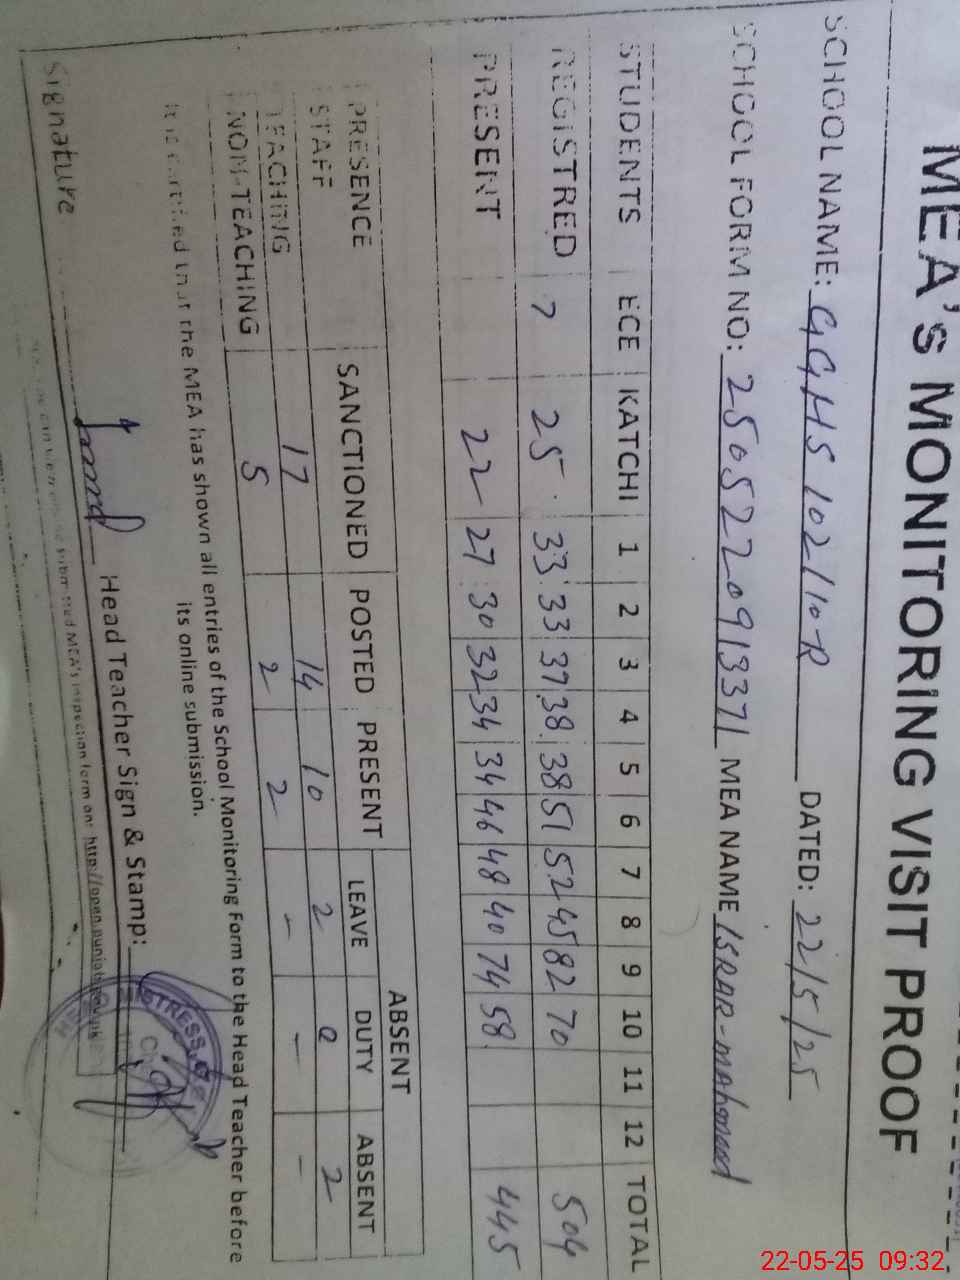 MEA's MONITORING VISIT PROOF
SCHOOL NAME: GGHS 102/10R DATED: 22/5/25
SCHOOL FORM NO: 2505220913371 MEA NAME ISRAR-mahmood
STUDENTS ECE KATCHI 1 2 3 4 5 6 7 8 9 10 11 12 TOTAL
REGISTRED 7 25 33 33 37 38 38 51 52 45 82 70 504
PRESENT 22 27 30 32 34 34 46 48 40 74 58 445
PRESENCE SANCTIONED POSTED PRESENT ABSENT
STAFF LEAVE DUTY ABSENT
TEACHING 17 14 10 2 0 2
NON-TEACHING 5 2 2 - - -
It is certified that the MEA has shown all entries of the School Monitoring Form to the Head Teacher before
its online submission.
Signature Head Teacher Sign & Stamp:
submitted MEA's inspection form on: http://open.punjab.gov.pk
MISTRESS
22-05-25 09:32